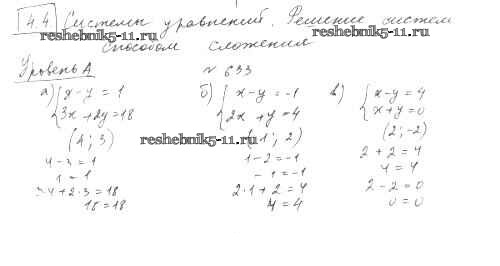 4.4. Системы уравнений. Решение систем
reshebnik5-11.ru reshebnik5-11.ru
способом сложения
Уровень А
№ 633
а) { x - y = 1 б) { x - y = -1 в) { x - y = 4
3x + 2y = 18 2x + y = 4 x + y = 0
(4; 3) reshebnik5-11.ru (1; 2) (2; -2)
4 - 3 = 1 1 - 2 = -1 2 + 2 = 4
1 = 1 -1 = -1 4 = 4
3·4 + 2·3 = 18 2·1 + 2 = 4 2 - 2 = 0
18 = 18 4 = 4 0 = 0